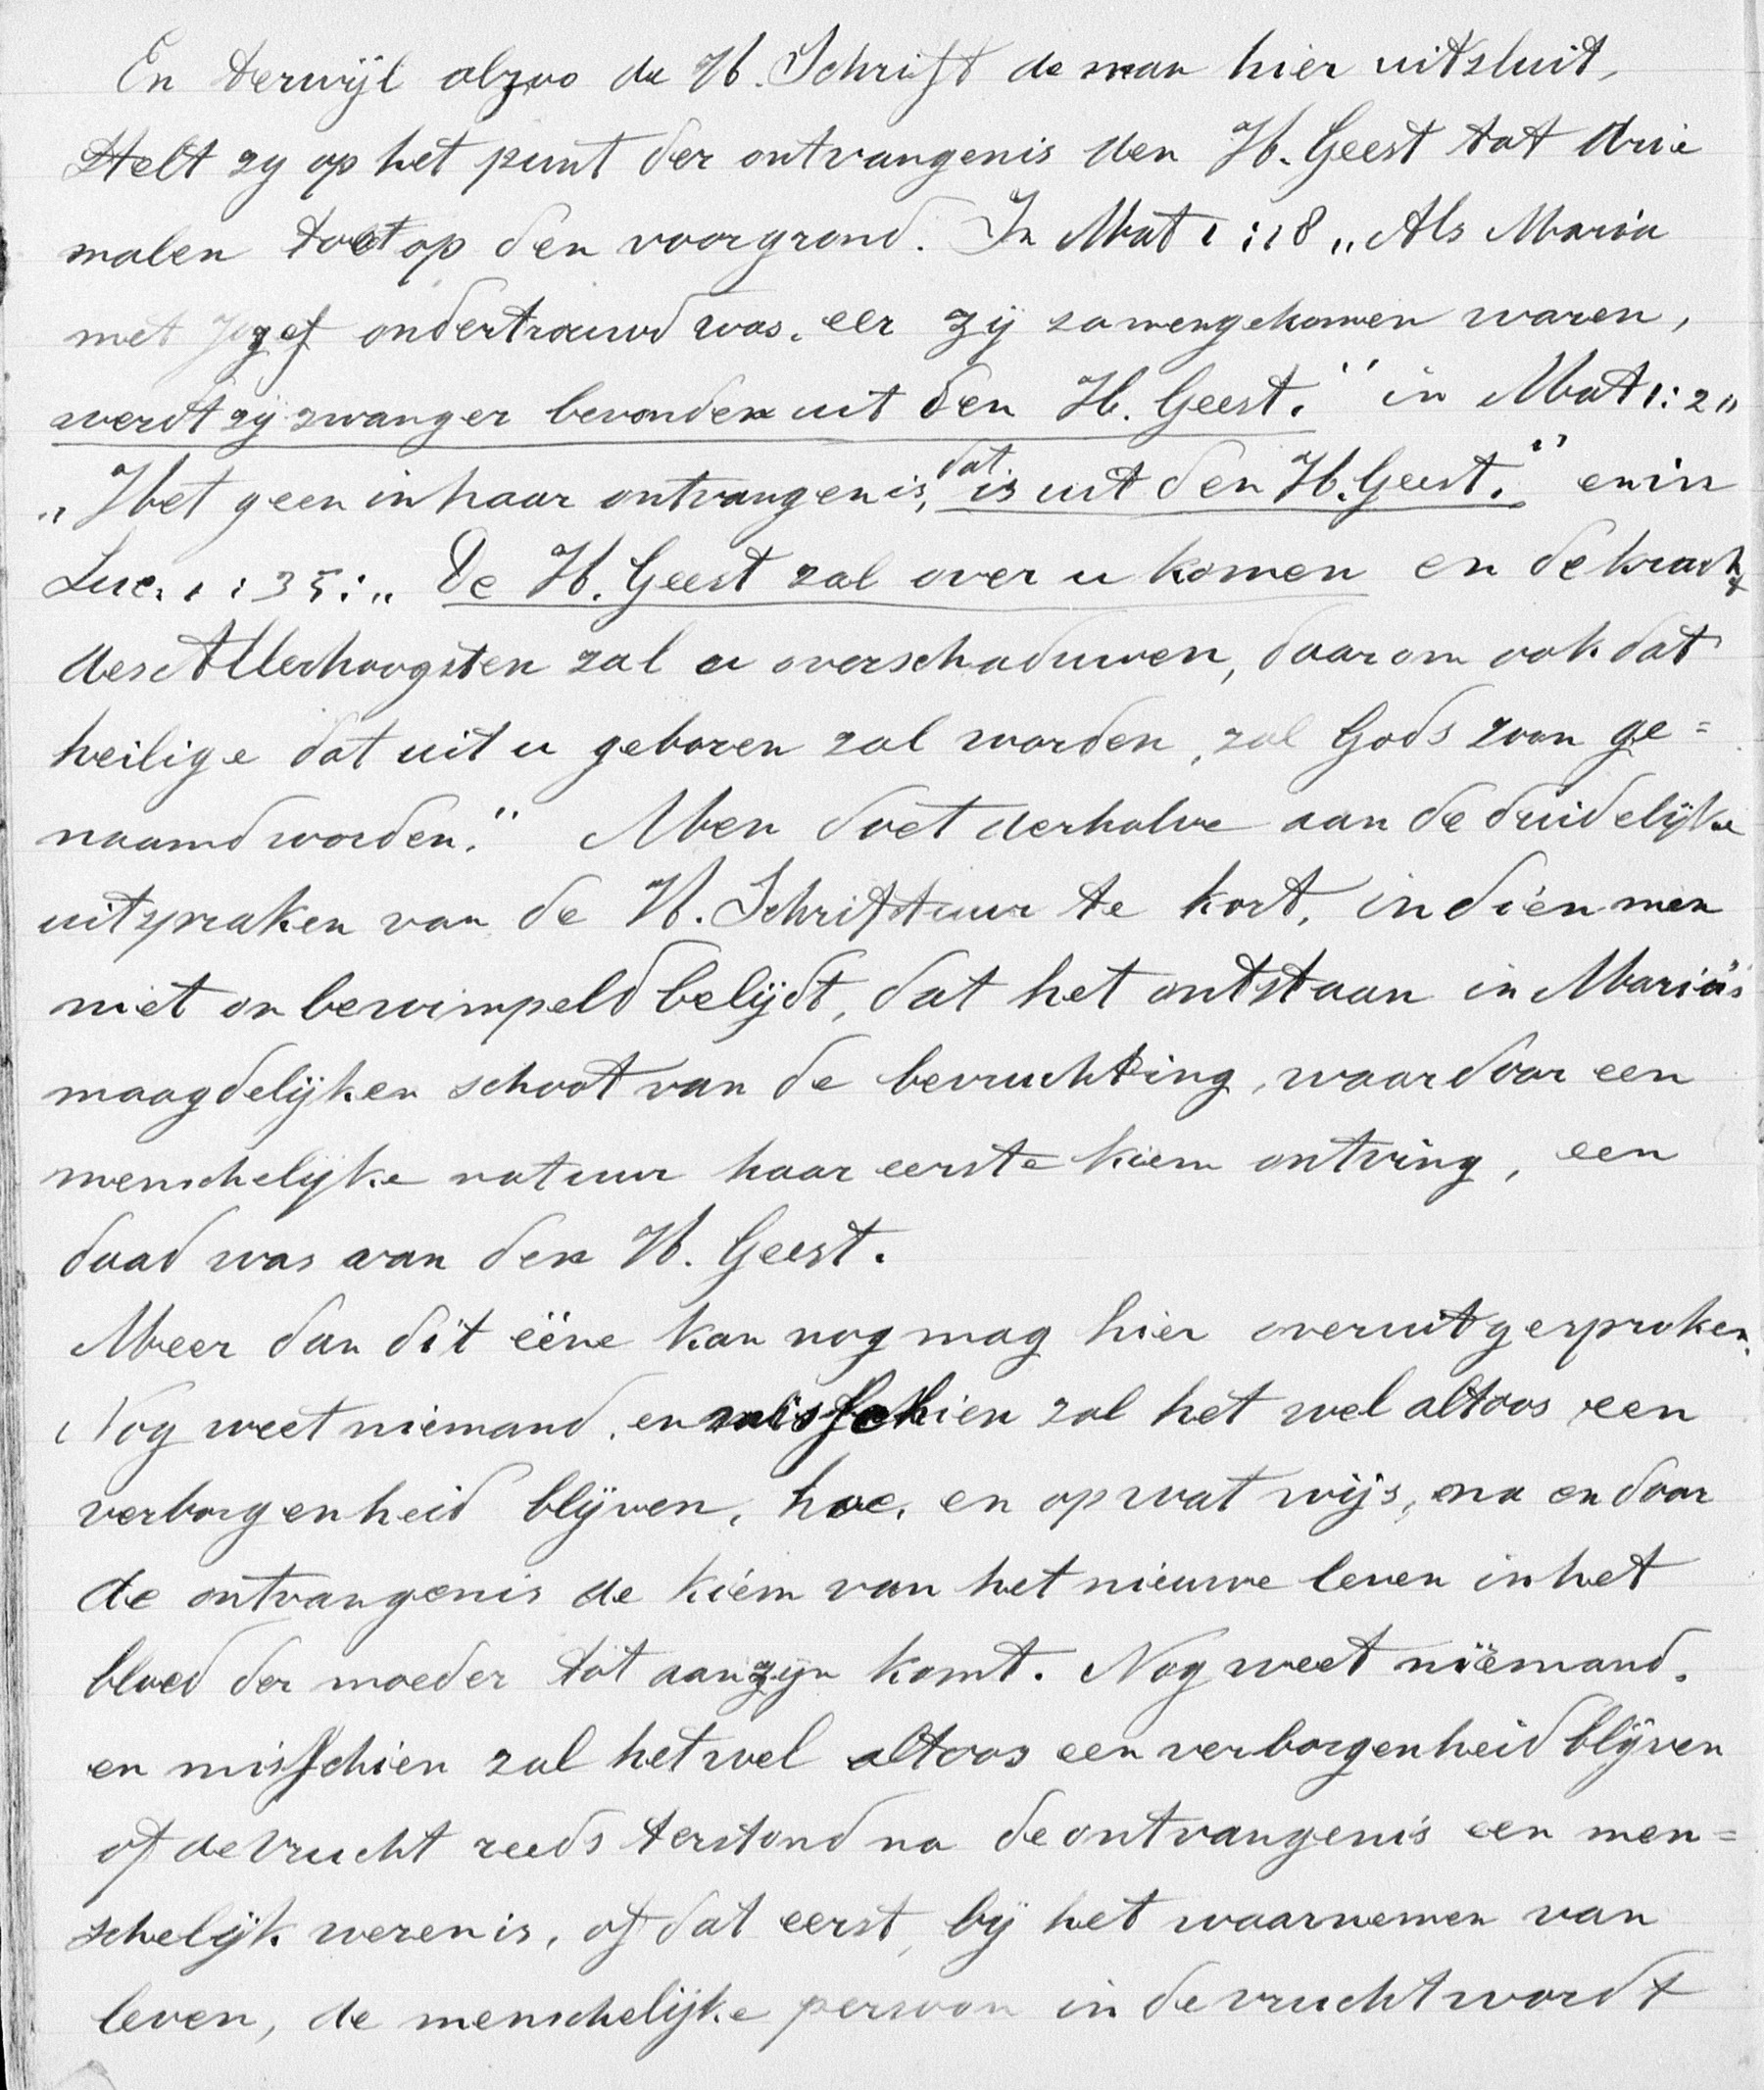 En terwijl alzoo de H. Schrift de man hier uitsluit,
Stelt zy op het punt der ontvangenis den H. Geest tot drie
malen toe op den voorgrond. In Mat 1:18 „Als Maria
met Jozef ondertrouwd was, eer zij samengekomen waren,
werdt zij zwanger bevonden uit den H. Geest." in Mat 1:20
„Het geen in haar ontvangen is, dat is uit den H. Geest." en in
Luc. 1:35: „De H. Geest zal over u komen en de kracht
des Allerhoogsten zal u overschaduwen, daarom ook dat
heilige dat uit u geboren zal worden, zal Gods zoon ge=
naamd worden." Men doet derhalve aan de duidelijke
uitspraken van de H. Schriftuur te kort, indien men
niet onbewimpeld belijdt, dat het ontstaan in Maria's
maagdelijken schoot van de bevruchting, waardoor een
menschelijke natuur haar eerste kiem ontving, een
daad was van den H. Geest.
Meer dan dit ééne kan nog mag hier over uitgesproken.
Nog weet niemand, en misschien zal het wel altoos een
verborgenheid blijven, hoe, en op wat wijs, na en door
de ontvangenis de kiem van het nieuwe leven in het
bloed der moeder tot aanzijn komt. Nog weet niemand,
en misschien zal het wel altoos een verborgenheid blijven
of de vrucht reeds terstond na de ontvangenis een men=
schelijk wezen is, of dat eerst, bij het waarnemen van
leven, de menschelijke persoon in de vrucht wordt